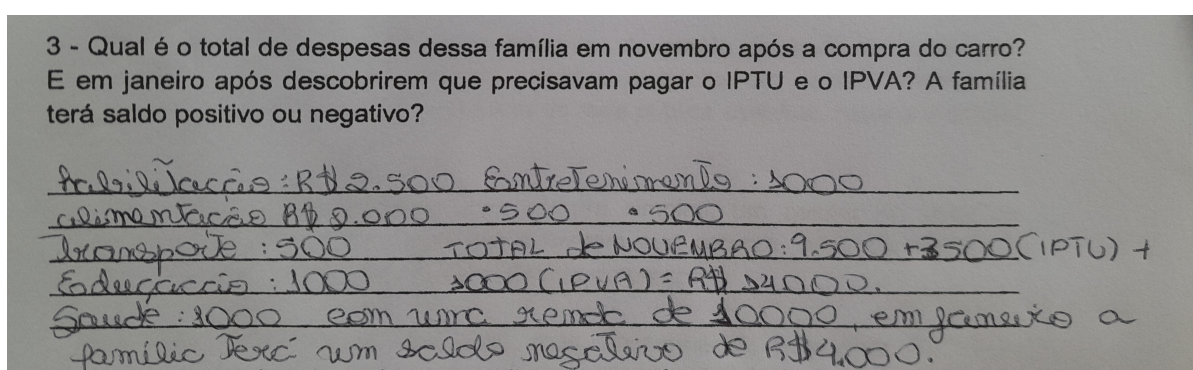 3 - Qual é o total de despesas dessa família em novembro após a compra do carro?
E em janeiro após descobrirem que precisavam pagar o IPTU e o IPVA? A família
terá saldo positivo ou negativo?
R$ 2.500 Entretenimento : 1000
alimentação R$ 2.000 • 500 • 500
Transporte : 500 TOTAL de NOVEMBRO: 9.500 + 3500 (IPTU) +
Educaccão : 1000 1000 (IPVA) = R$ 14000.
Saude : 1000 com uma renda de 10000, em janeiro a
família Terá um saldo negativo de R$ 4.000.